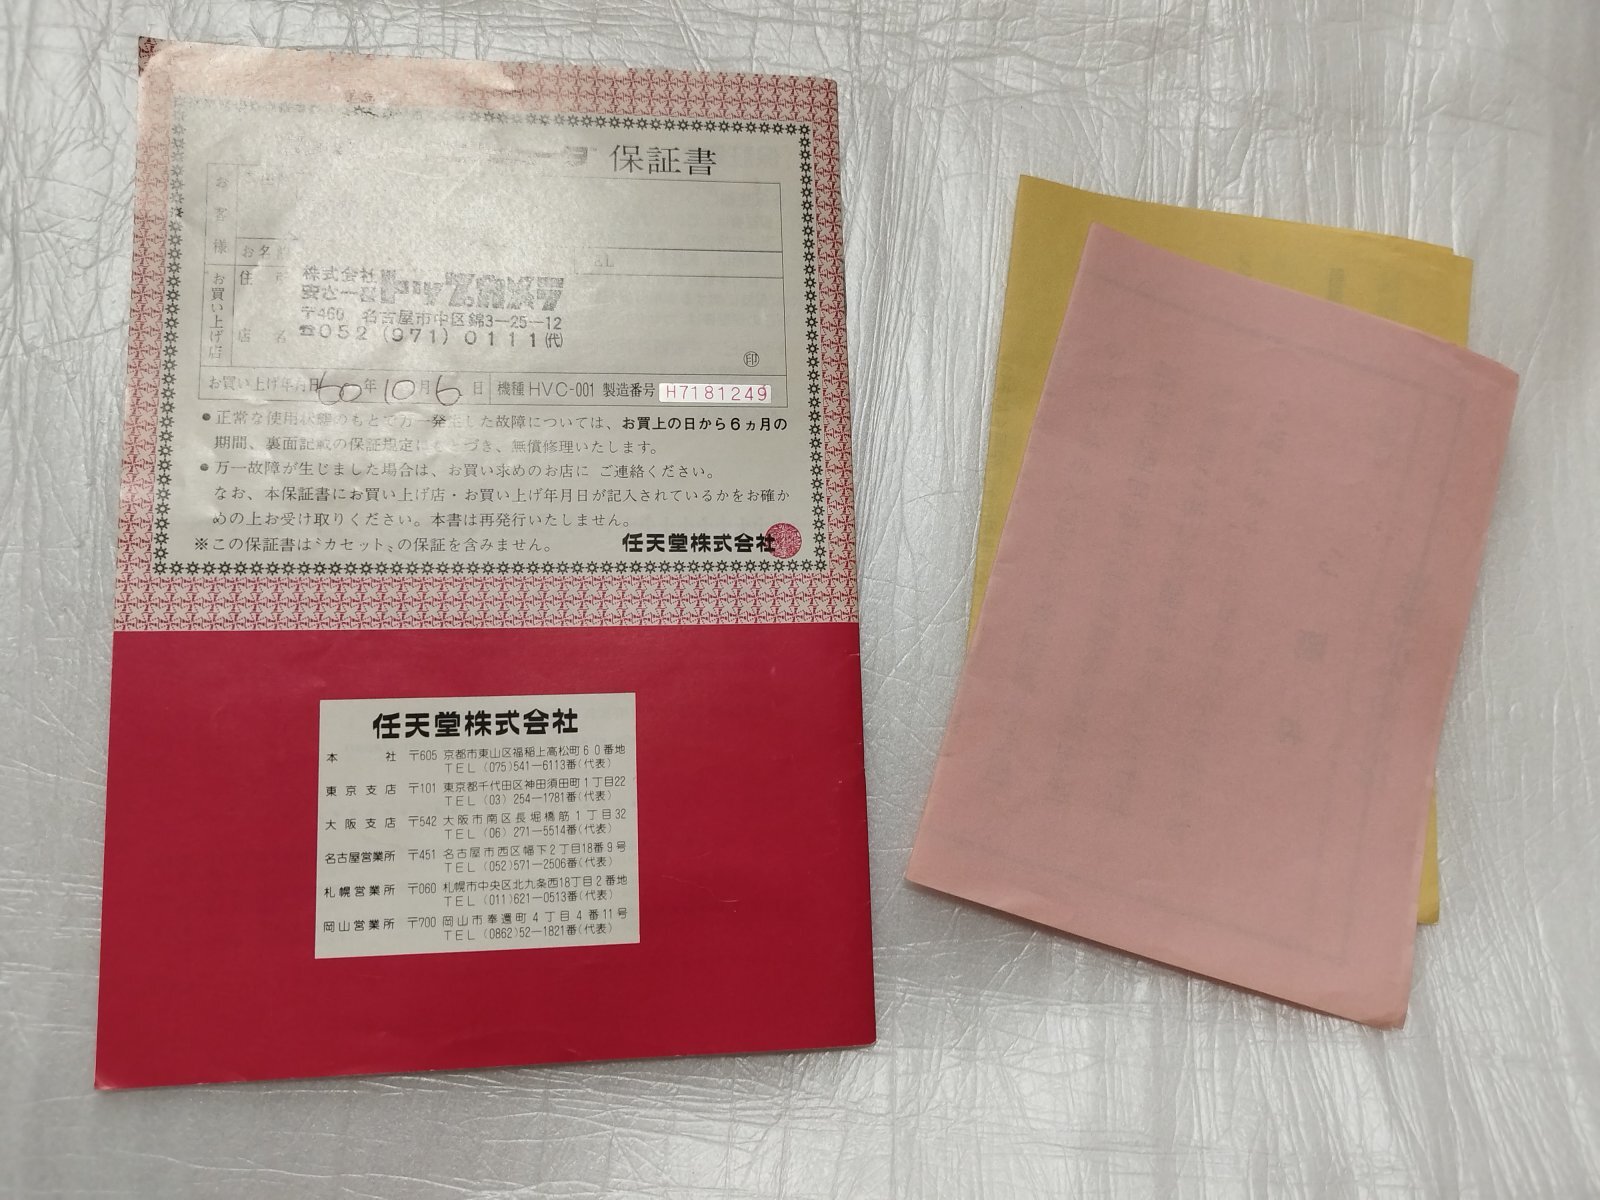 保証書
お客様
お名前
TEL
お買い上げ店
住所
株式会社
トップカメラ
〒460 名古屋市中区錦3-25-12
☎052(971)0111(代)
店名
印
お買い上げ年月日 60年10月6日 機種HVC-001 製造番号 H7181249
●正常な使用状態のもとで万一発生した故障については、お買上の日から6ヵ月の
期間、裏面記載の保証規定にもとづき、無償修理いたします。
●万一故障が生じました場合は、お買い求めのお店に ご連絡ください。
なお、本保証書にお買い上げ店・お買い上げ年月日が記入されているかをお確か
めの上お受け取りください。本書は再発行いたしません。
※この保証書は〝カセット〟の保証を含みません。
任天堂株式会社
任天堂株式会社
本社 〒605 京都市東山区福稲上高松町60番地
TEL (075)541-6113番(代表)
東京支店 〒101 東京都千代田区神田須田町1丁目22
TEL (03) 254-1781番(代表)
大阪支店 〒542 大阪市南区長堀橋筋1丁目32
TEL (06) 271-5514番(代表)
名古屋営業所 〒451 名古屋市西区幅下2丁目18番9号
TEL (052)571-2506番(代表)
札幌営業所 〒060 札幌市中央区北九条西18丁目2番地
TEL (011)621-0513番(代表)
岡山営業所 〒700 岡山市奉還町4丁目4番11号
TEL (0862)52-1821番(代表)